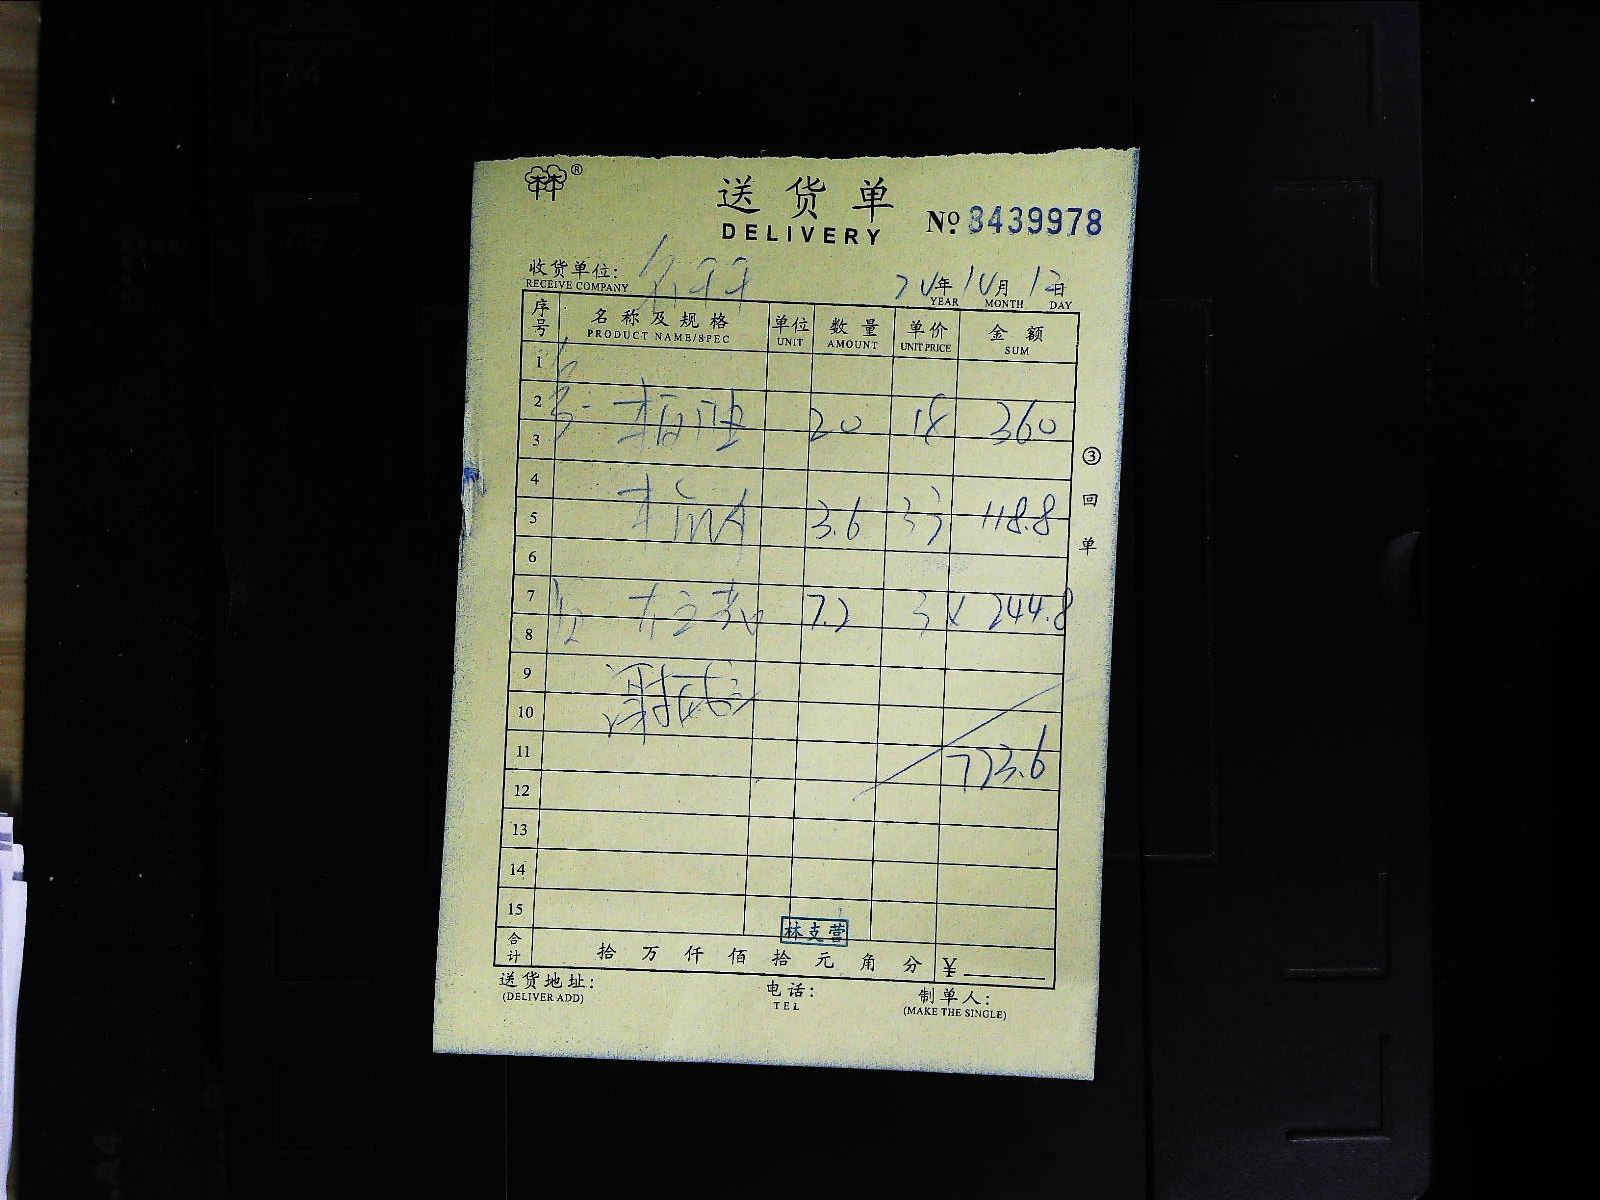 林®
送货单
DELIVERY
№ 3439978
收货单位:
RECEIVE COMPANY
年 月 12日
YEAR MONTH DAY
序号 名称及规格 单位 数量 单价 金额
PRODUCT NAME/SPEC UNIT AMOUNT UNIT PRICE SUM
1
2 20 18 360
3
4
5 3.6 33 118.8
6
7 7.2 34 244.8
8
9
10
11 723.6
12
13
14
15
林支营
合计 拾 万 仟 佰 拾 元 角 分 ¥
送货地址: 电话: 制单人:
(DELIVER ADD) TEL (MAKE THE SINGLE)
③回单